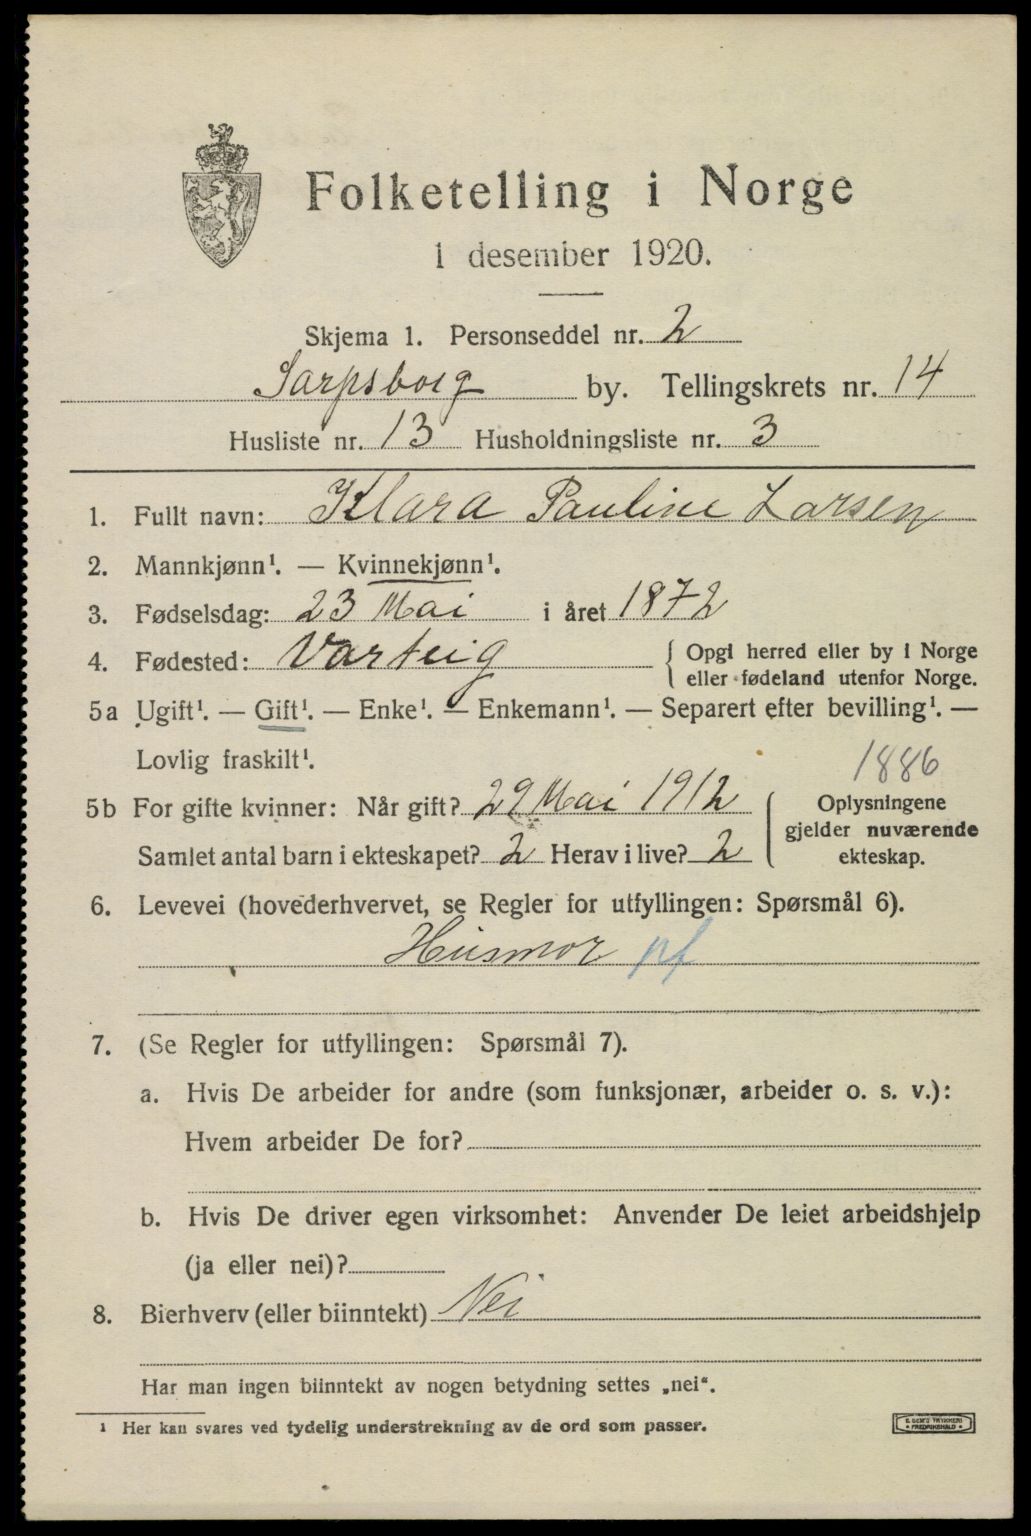 Folketelling i Norge
1 desember 1920.
Skjema 1. Personseddel nr. 2
Sarpsborg by. Tellingskrets nr. 14
Husliste nr. 13 Husholdningsliste nr. 3
1. Fullt navn: Klara Pauline Larsen
2. Mannkjønn¹. — Kvinnekjønn¹.
3. Fødselsdag: 23 Mai i året 1872
4. Fødested: Varteig
Opgi herred eller by i Norge
eller fødeland utenfor Norge.
5a Ugift¹. — Gift¹. — Enke¹. — Enkemann¹. — Separert efter bevilling¹. —
Lovlig fraskilt¹.
1886
5b For gifte kvinner: Når gift? 29 Mai 1912
Samlet antal barn i ekteskapet? 2 Herav i live? 2
Oplysningene
gjelder nuværende
ekteskap.
6. Levevei (hovederhvervet, se Regler for utfyllingen: Spørsmål 6).
Husmor pf
7. (Se Regler for utfyllingen: Spørsmål 7).
a. Hvis De arbeider for andre (som funksjonær, arbeider o. s. v.):
Hvem arbeider De for?
b. Hvis De driver egen virksomhet: Anvender De leiet arbeidshjelp
(ja eller nei)?
8. Bierhverv (eller biinntekt) Nei
Har man ingen biinntekt av nogen betydning settes „nei“.
¹ Her kan svares ved tydelig understrekning av de ord som passer.
E. SEM'S TRYKKERI
FREDRIKSHALD